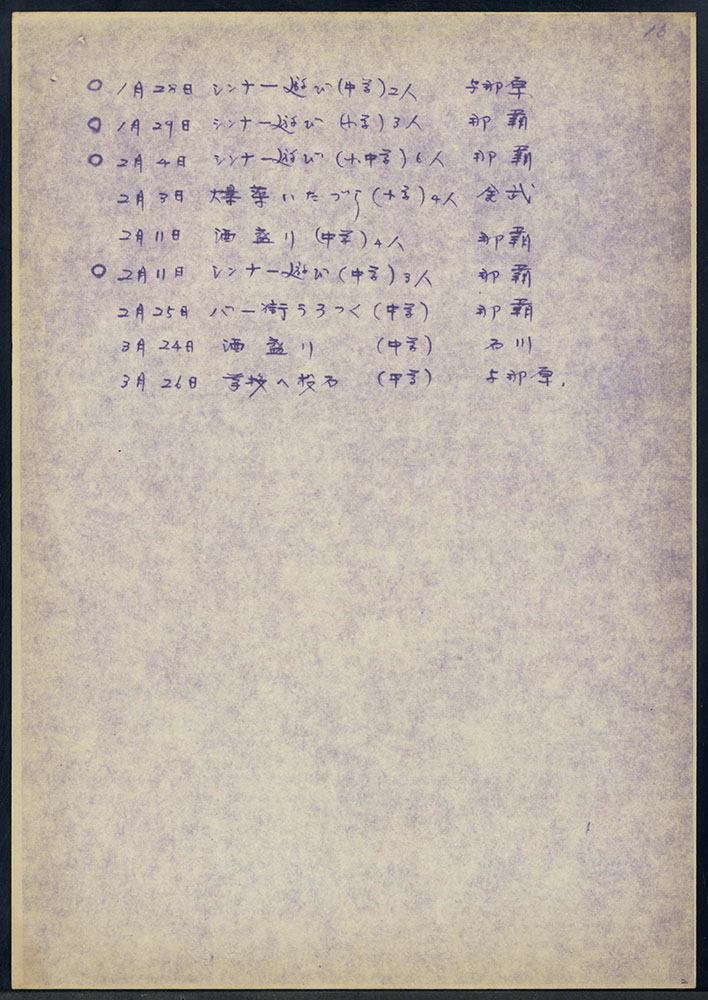 16
○ 1月28日 シンナー遊び(中学)2人 与那原
○ 1月29日 シンナー遊び(小学)3人 那覇
○ 2月4日 シンナー遊び(小中学)6人 那覇
2月3日 爆薬いたづら(小学)4人 金武
2月11日 酒盛り(中学)4人 那覇
○ 2月11日 シンナー遊び(中学)3人 那覇
2月25日 バー街うろつく(中学) 那覇
3月24日 酒盛り (中学) 石川
3月26日 学校へ投石 (中学) 与那原.